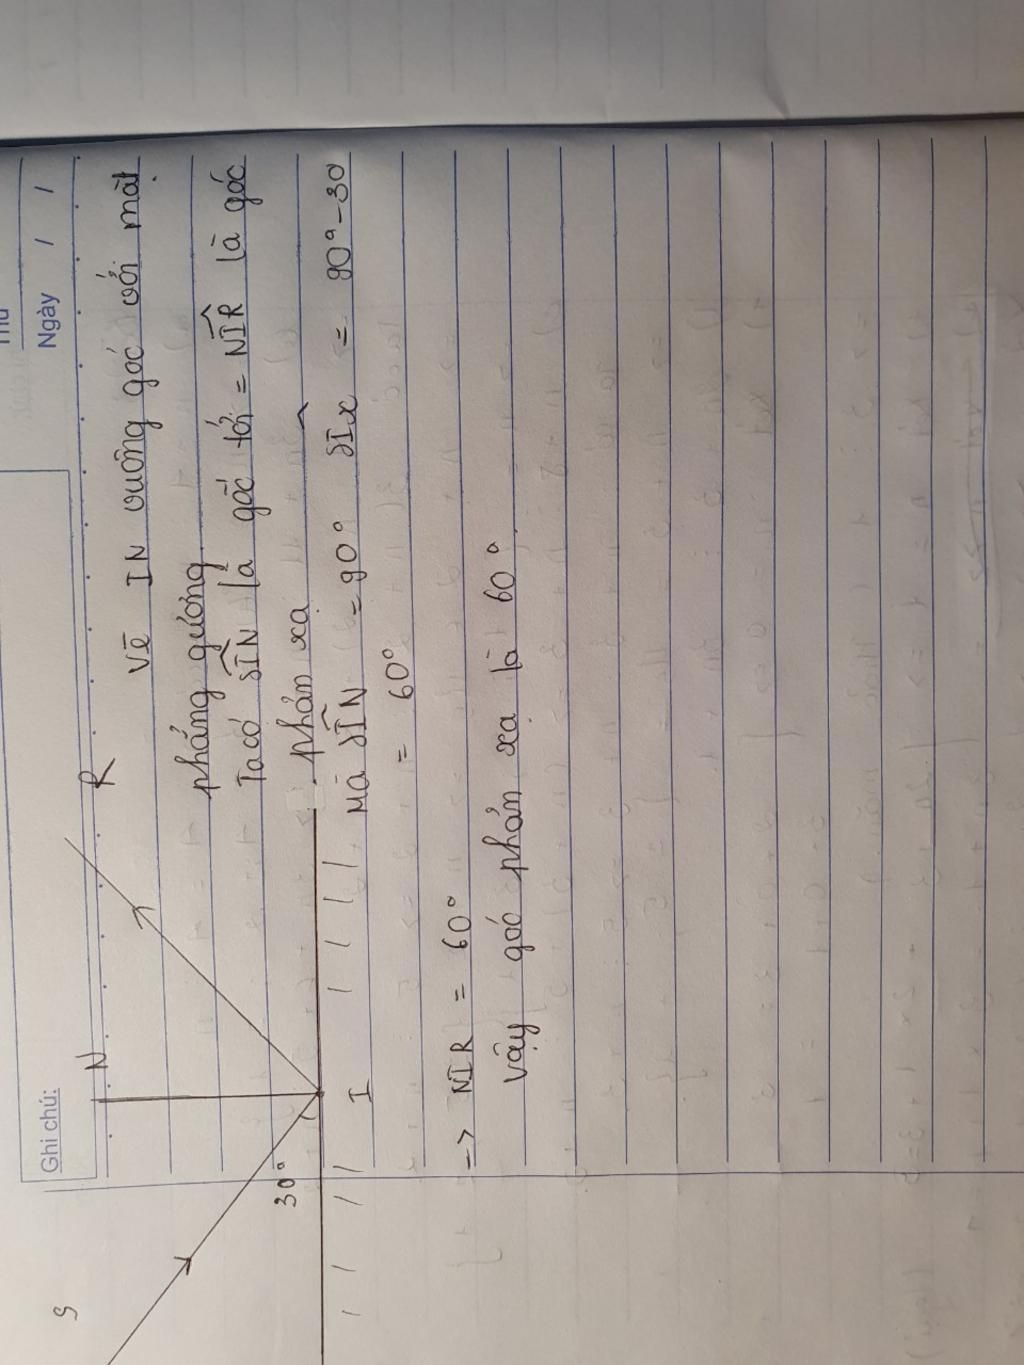 Thứ
Ngày / /
Ghi chú:
S
N
R
30°
I
Vẽ IN vuông góc với mặt
phẳng gương.
Ta có SIN là góc tới = NIR là góc
phản xạ
Mà SIN = 90° SIx = 90° - 30
= 60°
-> NIR = 60°
Vậy góc phản xạ là 60°